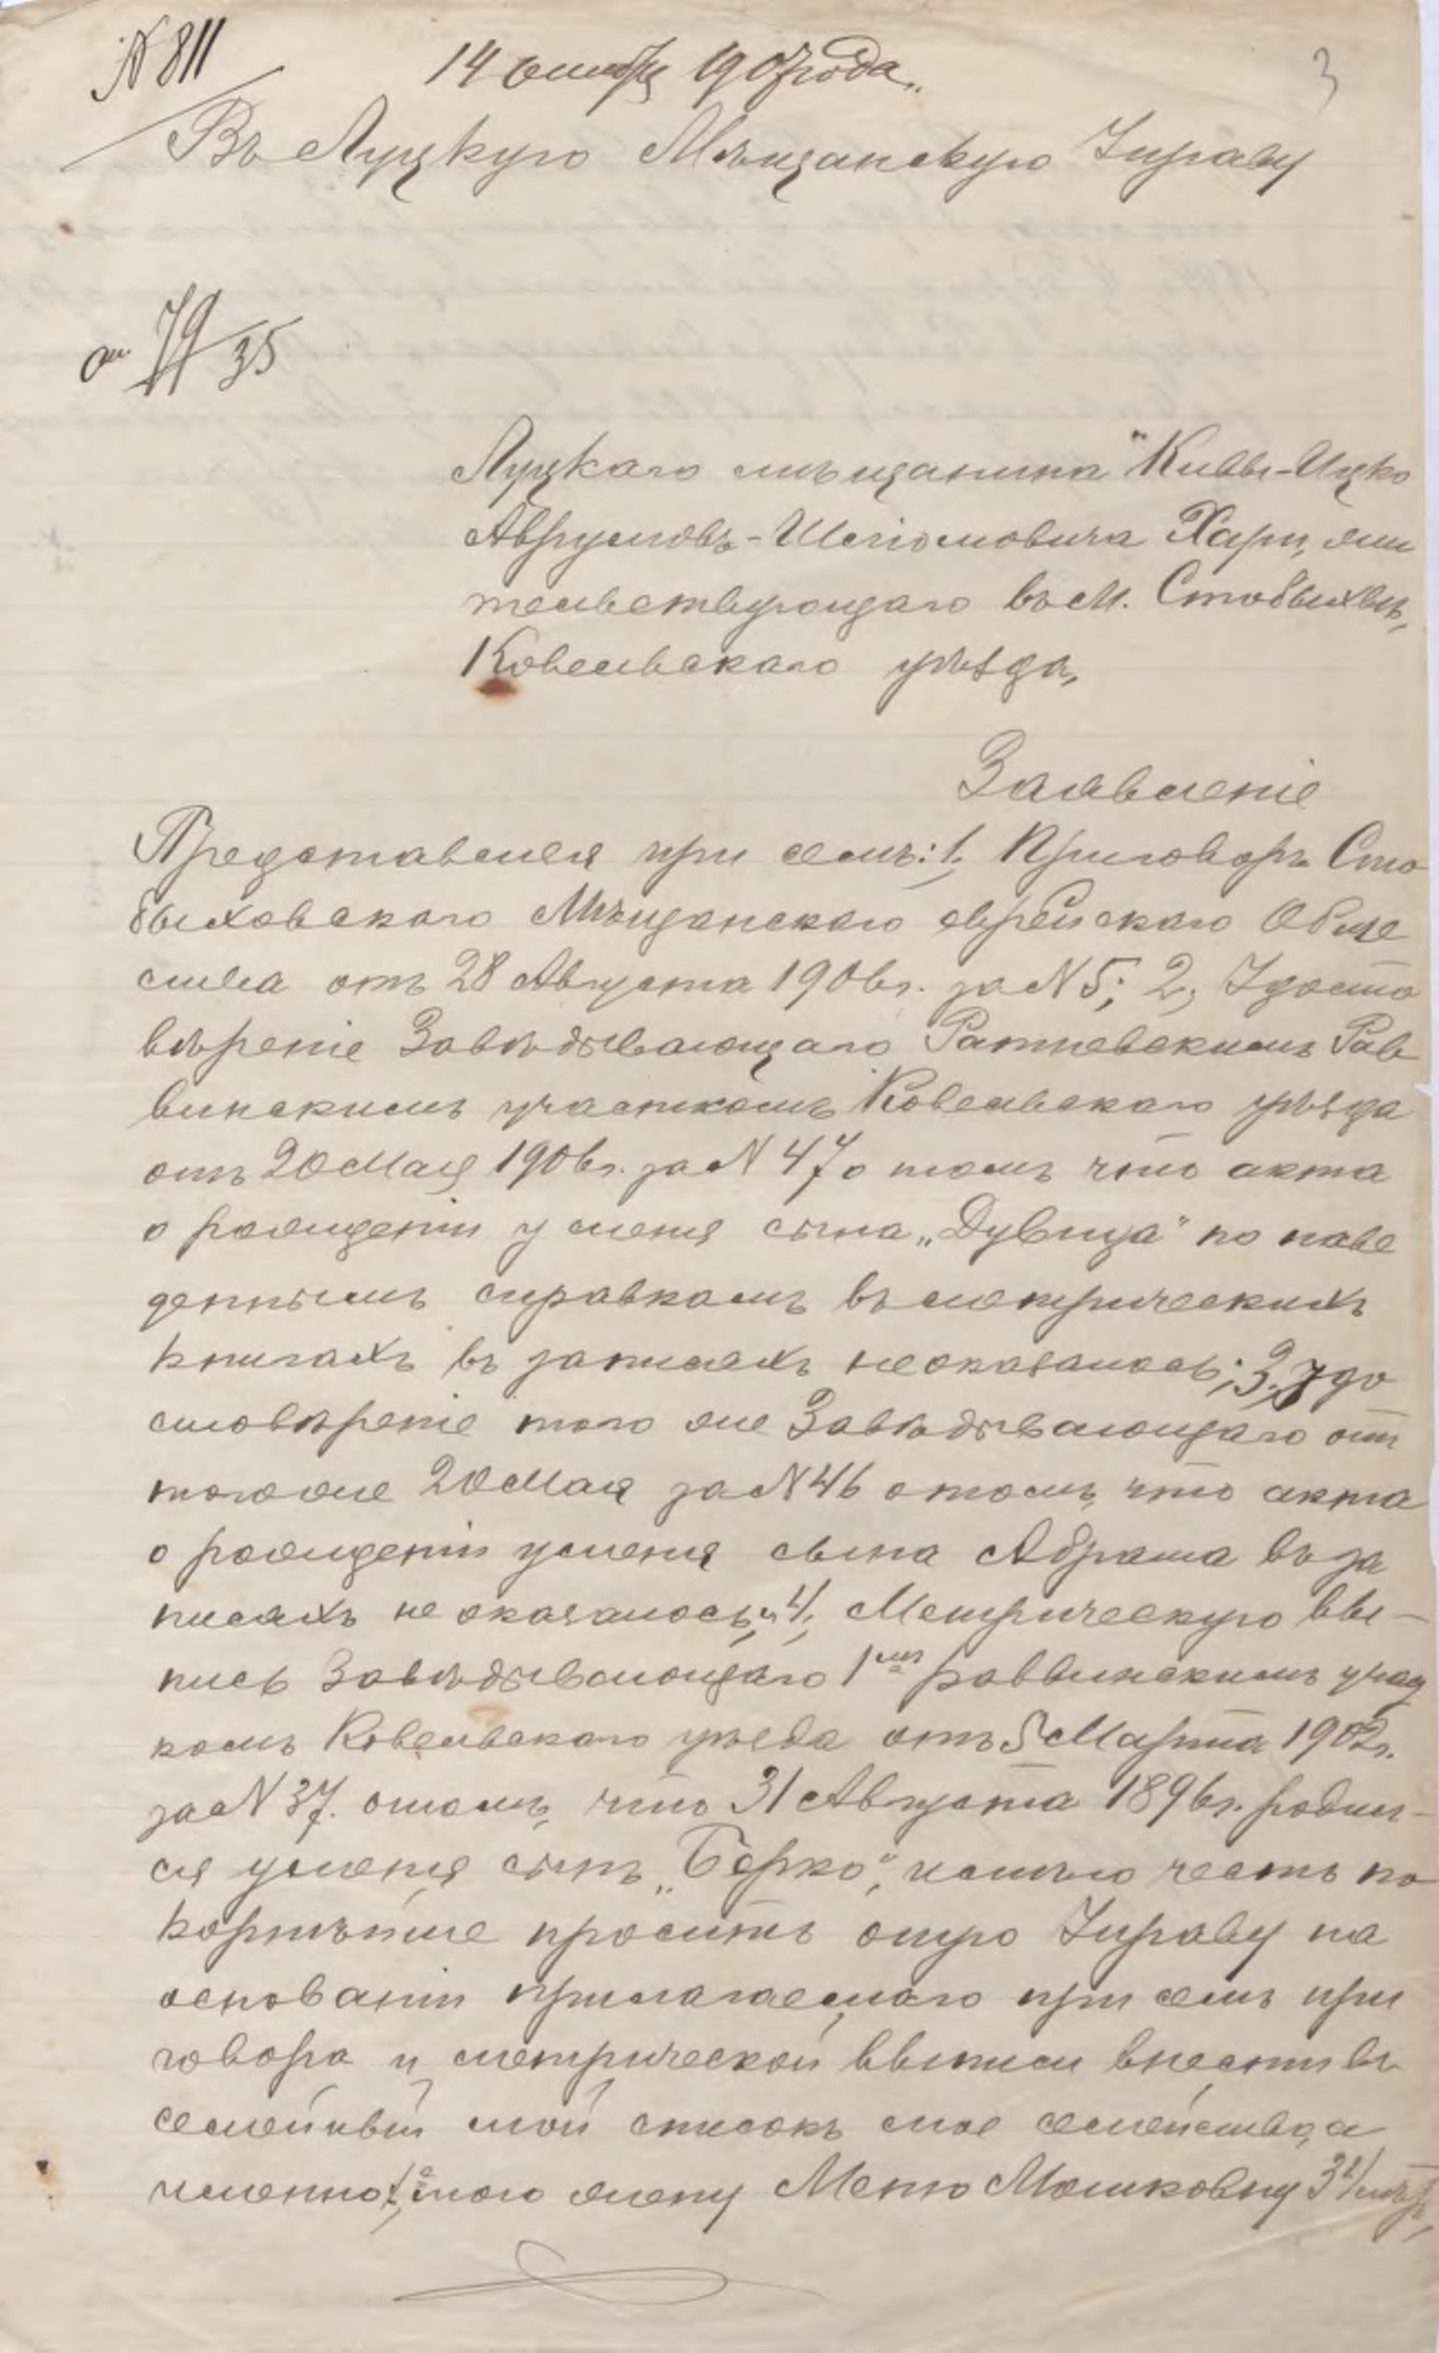 № 811
14 октября 1907 года.
3
Въ Луцкую Мѣщанскую Управу
79/35
Луцкаго мѣщанина "Кивы-Ицко
Аврумовъ-Шлiомовича Хари, жи
тельствующаго въ м. Стобыхвѣ,
Ковельскаго уѣзда,
Заявленіе
Представляя при семъ: 1, Приговоръ Сто
быховскаго Мѣщанскаго еврейскаго Обще
ства отъ 28 Августа 1906 г. за № 5; 2, Удосто
вѣреніе Завѣдывающаго Ратневскимъ Рав
винскимъ участкомъ Ковельскаго уѣзда
отъ 20 Мая 1906 г. за № 47 о томъ что акта
о рожденіи у меня сына „Дувида" по наве
деннымъ справкамъ въ метрическихъ
книгахъ въ записяхъ не оказалось; 3, Удо
стовѣреніе того же Завѣдывающаго отъ
того же 20 Мая за № 46 о томъ, что акта
о рожденіи у меня сына Абрама въ за
писяхъ не оказалось, и 4, Метрическую вы-
пись Завѣдывающаго 1мъ раввинскимъ учас
комъ Ковельскаго уѣзда отъ 5 Марта 1902 г.
за № 37. о томъ, что 31 Августа 1896 г. родил-
ся у меня сынъ „Берко", имѣю честь по
корнѣйше просить оную Управу на
основаніи прилагаемаго при семъ при
говора и метрической выписи внести въ
семейный мой списокъ мое семейство, а
именно: 1, мою жену Меню Мошковну 32 лѣтъ,